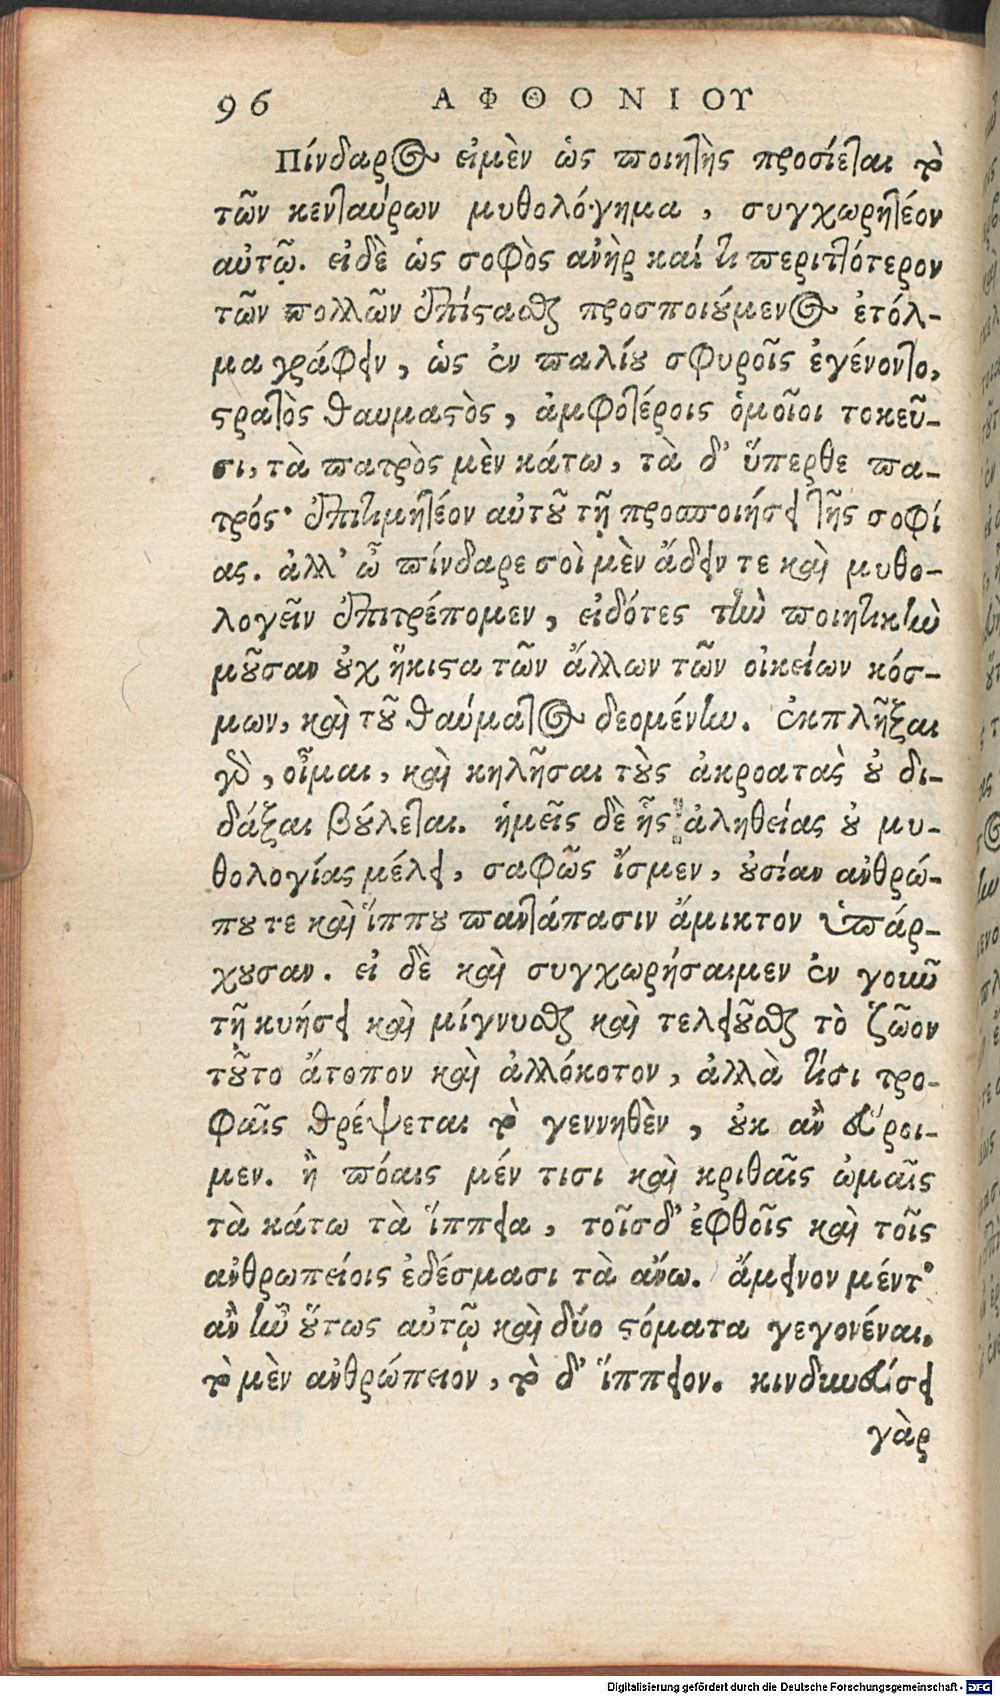 96 ΑΦΘΟΝΙΟΥ
Πίνδαρος εἰμὲν ὡς ποιητὴς προσίεται τὸ
τῶν κενταύρων μυθολόγημα, συγχωρητέον
αὐτῷ. εἰδὲ ὡς σοφὸς ἀνὴρ καί τι περιττότερον
τῶν πολλῶν ἐπίστασθαι προσποιούμενος ἐτόλ-
μα γράφειν, ὡς ἐν παλίου σφυροῖς ἐγένοντο,
στρατὸς θαυμαστὸς, ἀμφοτέροις ὁμοῖοι τοκεῦ-
σι, τὰ πατρὸς μὲν κάτω, τὰ δ' ὕπερθε πα-
τρός· ἐπιτιμητέον αὐτοῦ τῇ προσποιήσει τῆς σοφί
ας. ἀλλ' ὦ πίνδαρε σοὶ μὲν ᾄδειν τε καὶ μυθο-
λογεῖν ἐπιτρέπομεν, εἰδότες τὴν ποιητικὴν
μοῦσαν οὐχ ἥκιστα τῶν ἄλλων τῶν οἰκείων κόσ-
μων, καὶ τοῦ θαύματος δεομένην. ἐκπλῆξαι
γὰρ, οἶμαι, καὶ κηλῆσαι τοὺς ἀκροατὰς οὐ δι-
δάξαι βούλεται. ἡμεῖς δὲ ἧς ἀληθείας οὐ μυ-
θολογίας μέλει, σαφῶς ἴσμεν, οὐσίαν ἀνθρώ-
που τε καὶ ἵππου παντάπασιν ἄμικτον ὑπάρ-
χουσαν. εἰ δὲ καὶ συγχωρήσαιμεν ἐν γοιῶ
τῇ κυήσει καὶ μίγνυσθαι καὶ τελειοῦσθαι τὸ ζῶον
τοῦτο ἄτοπον καὶ ἀλλόκοτον, ἀλλὰ τίσι τρο-
φαῖς θρέψεται τὸ γεννηθὲν, οὐκ ἂν εὕροι-
μεν. ἢ πόαις μέν τισι καὶ κριθαῖς ὠμαῖς
τὰ κάτω τὰ ἵππεια, τοῖσδ' ἑφθοῖς καὶ τοῖς
ἀνθρωπείοις ἐδέσμασι τὰ ἄνω. ἄμεινον μέντ'
ἂν ἦν οὕτως αὐτῷ καὶ δύο στόματα γεγονέναι.
τὸ μὲν ἀνθρώπειον, τὸ δ' ἵππειον. κινδυνεύσει
γὰρ
Digitalisierung gefördert durch die Deutsche Forschungsgemeinschaft - DFG